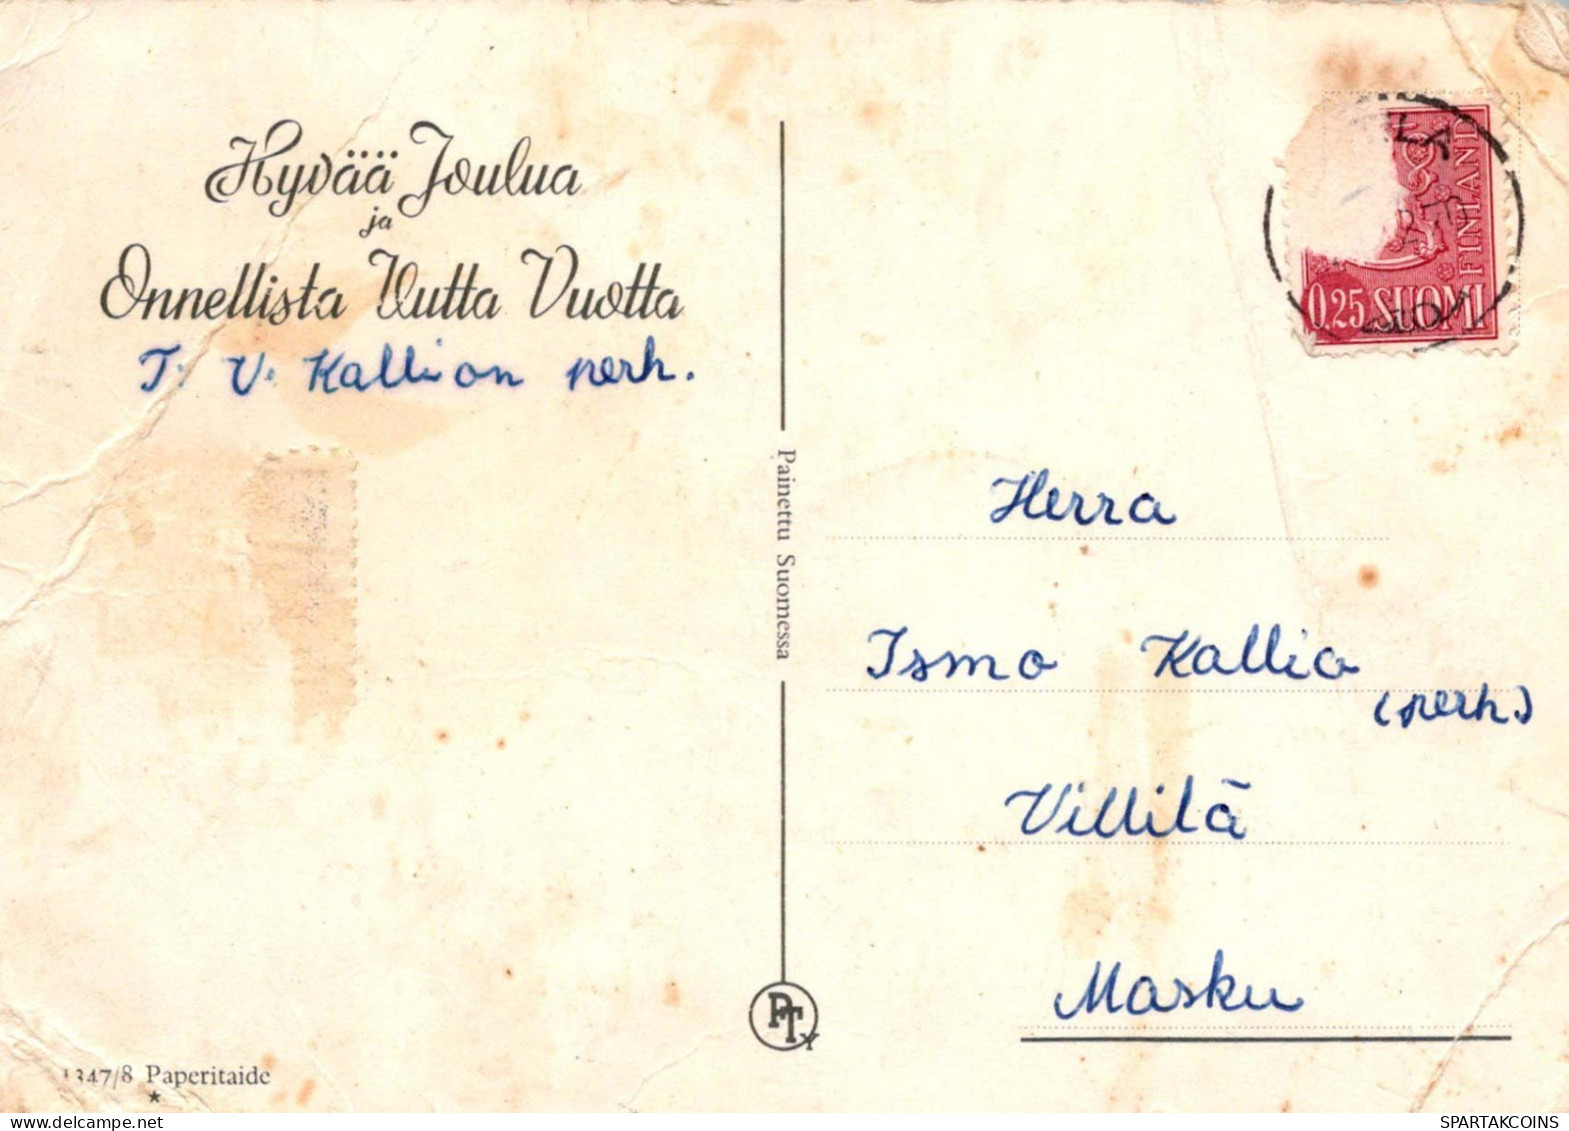 Hyvää Joulua
ja
Onnellista Uutta Vuotta
T. V. Kallion perh.
Painettu Suomessa
FINLAND
0.25 SUOMI
Herra
Ismo Kallio
(perh.)
Villilä
Masku
PTY
1347/8 Paperitaide
SPARTAKCOINS
SPARTAKCOINS.COM